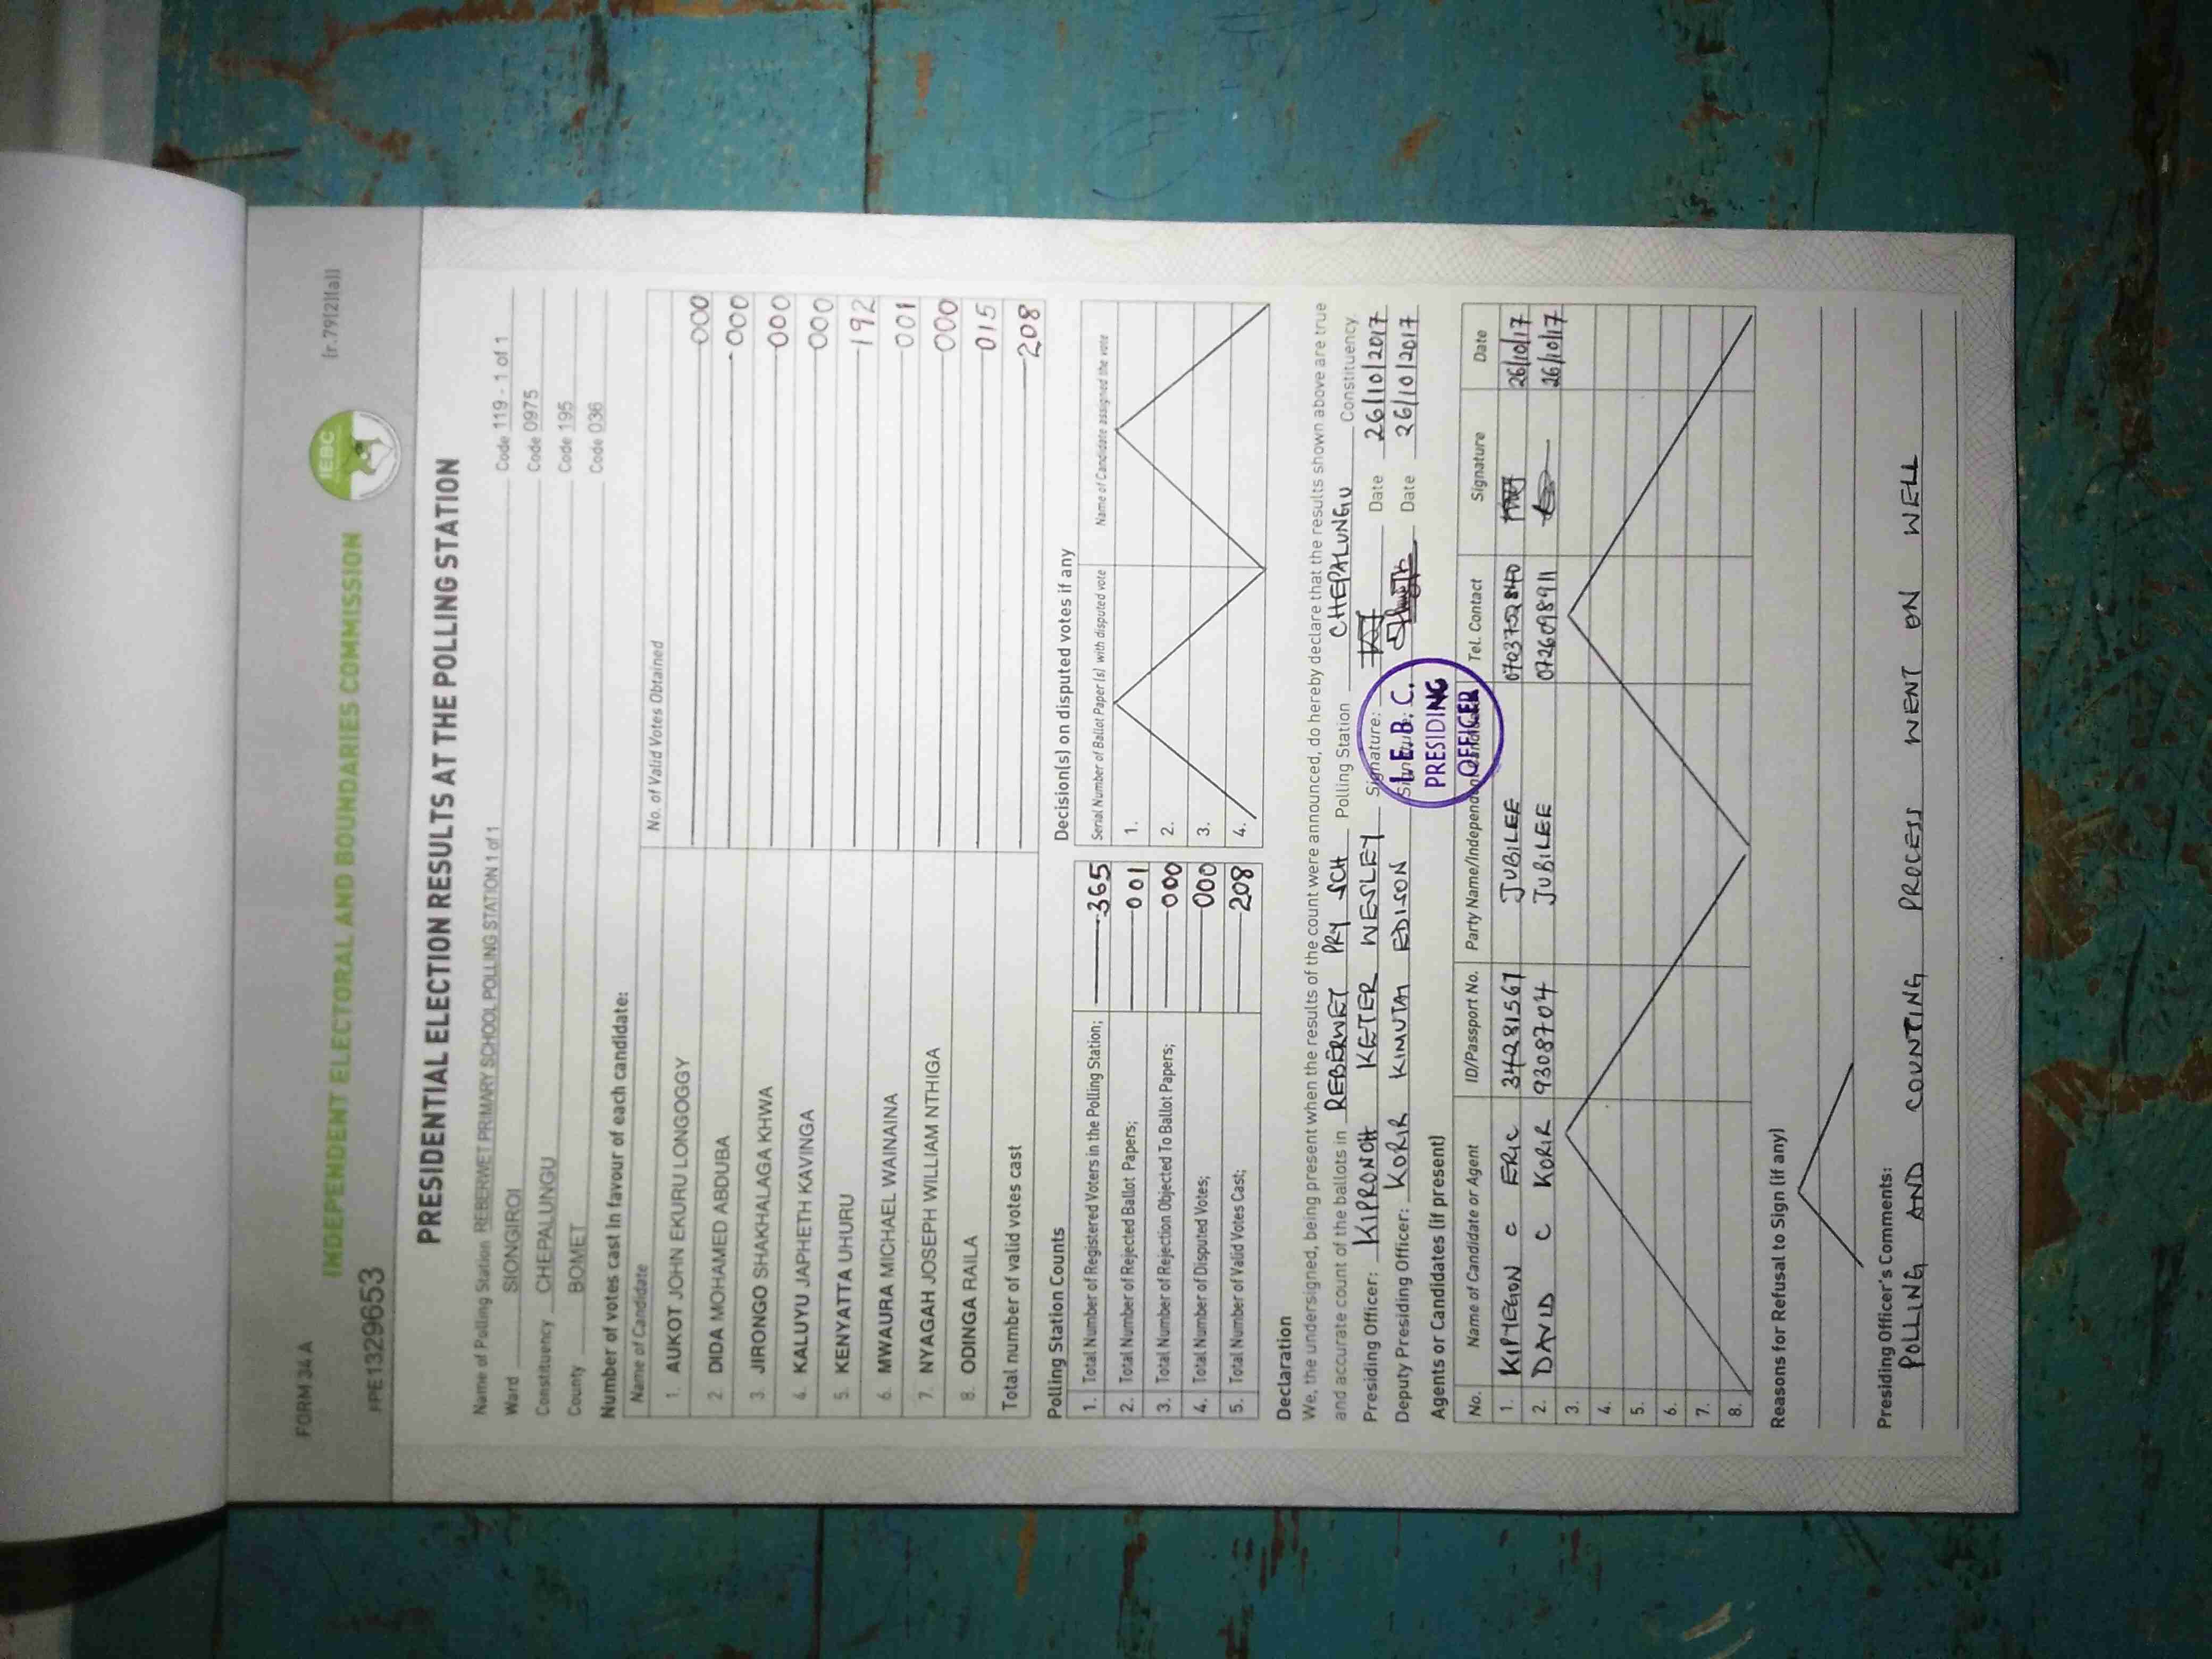 FORM 34 A
(r.79(2)(a))
IEBC
INDEPENDENT ELECTORAL AND BOUNDARIES COMMISSION
FPE1329653
PRESIDENTIAL ELECTION RESULTS AT THE POLLING STATION
Name of Polling Station REBERWET PRIMARY SCHOOL POLLING STATION 1 of 1 Code 119 - 1 of 1
Ward SIONGIROI Code 0975
Constituency CHEPALUNGU Code 195
County BOMET Code 036
Number of votes cast in favour of each candidate:
Name of Candidate No. of Valid Votes Obtained
1. AUKOT JOHN EKURU LONGOGGY 000
2 DIDA MOHAMED ABDUBA 000
3. JIRONGO SHAKHALAGA KHWA 000
4. KALUYU JAPHETH KAVINGA 000
5. KENYATTA UHURU 192
6. MWAURA MICHAEL WAINAINA 001
7. NYAGAH JOSEPH WILLIAM NTHIGA 000
8. ODINGA RAILA 015
Total number of valid votes cast 208
Polling Station Counts
1. Total Number of Registered Voters in the Polling Station; 365
2. Total Number of Rejected Ballot Papers; 001
3. Total Number of Rejection Objected To Ballot Papers; 000
4. Total Number of Disputed Votes; 000
5. Total Number of Valid Votes Cast; 208
Decision(s) on disputed votes if any
Serial Number of Ballot Paper (s) with disputed vote Name of Candidate assigned the vote
1.
2.
3.
4.
Declaration
We, the undersigned, being present when the results of the count were announced, do hereby declare that the results shown above are true
and accurate count of the ballots in REBERWET PRY SCH Polling Station CHEPALUNGU Constituency.
Presiding Officer: KIPRONOH KETER WESLEY Signature: Date 26/10/2017
Deputy Presiding Officer: KORIR KIMUTAI EDISON Signature: Date 26/10/2017
I.E.B.C.
PRESIDING
OFFICER
Agents or Candidates (if present)
No. Name of Candidate or Agent ID/Passport No. Party Name/Independent Tel. Contact Signature Date
1. KIPYEGON C ERIC 34281567 JUBILEE 26/10/17
2. DAVID C KORIR 9308704 JUBILEE 0726098911 26/10/17
3.
4.
5.
6.
7.
8.
Reasons for Refusal to Sign (if any)
Presiding Officer's Comments:
POLLING AND COUNTING PROCESS WENT ON WELL